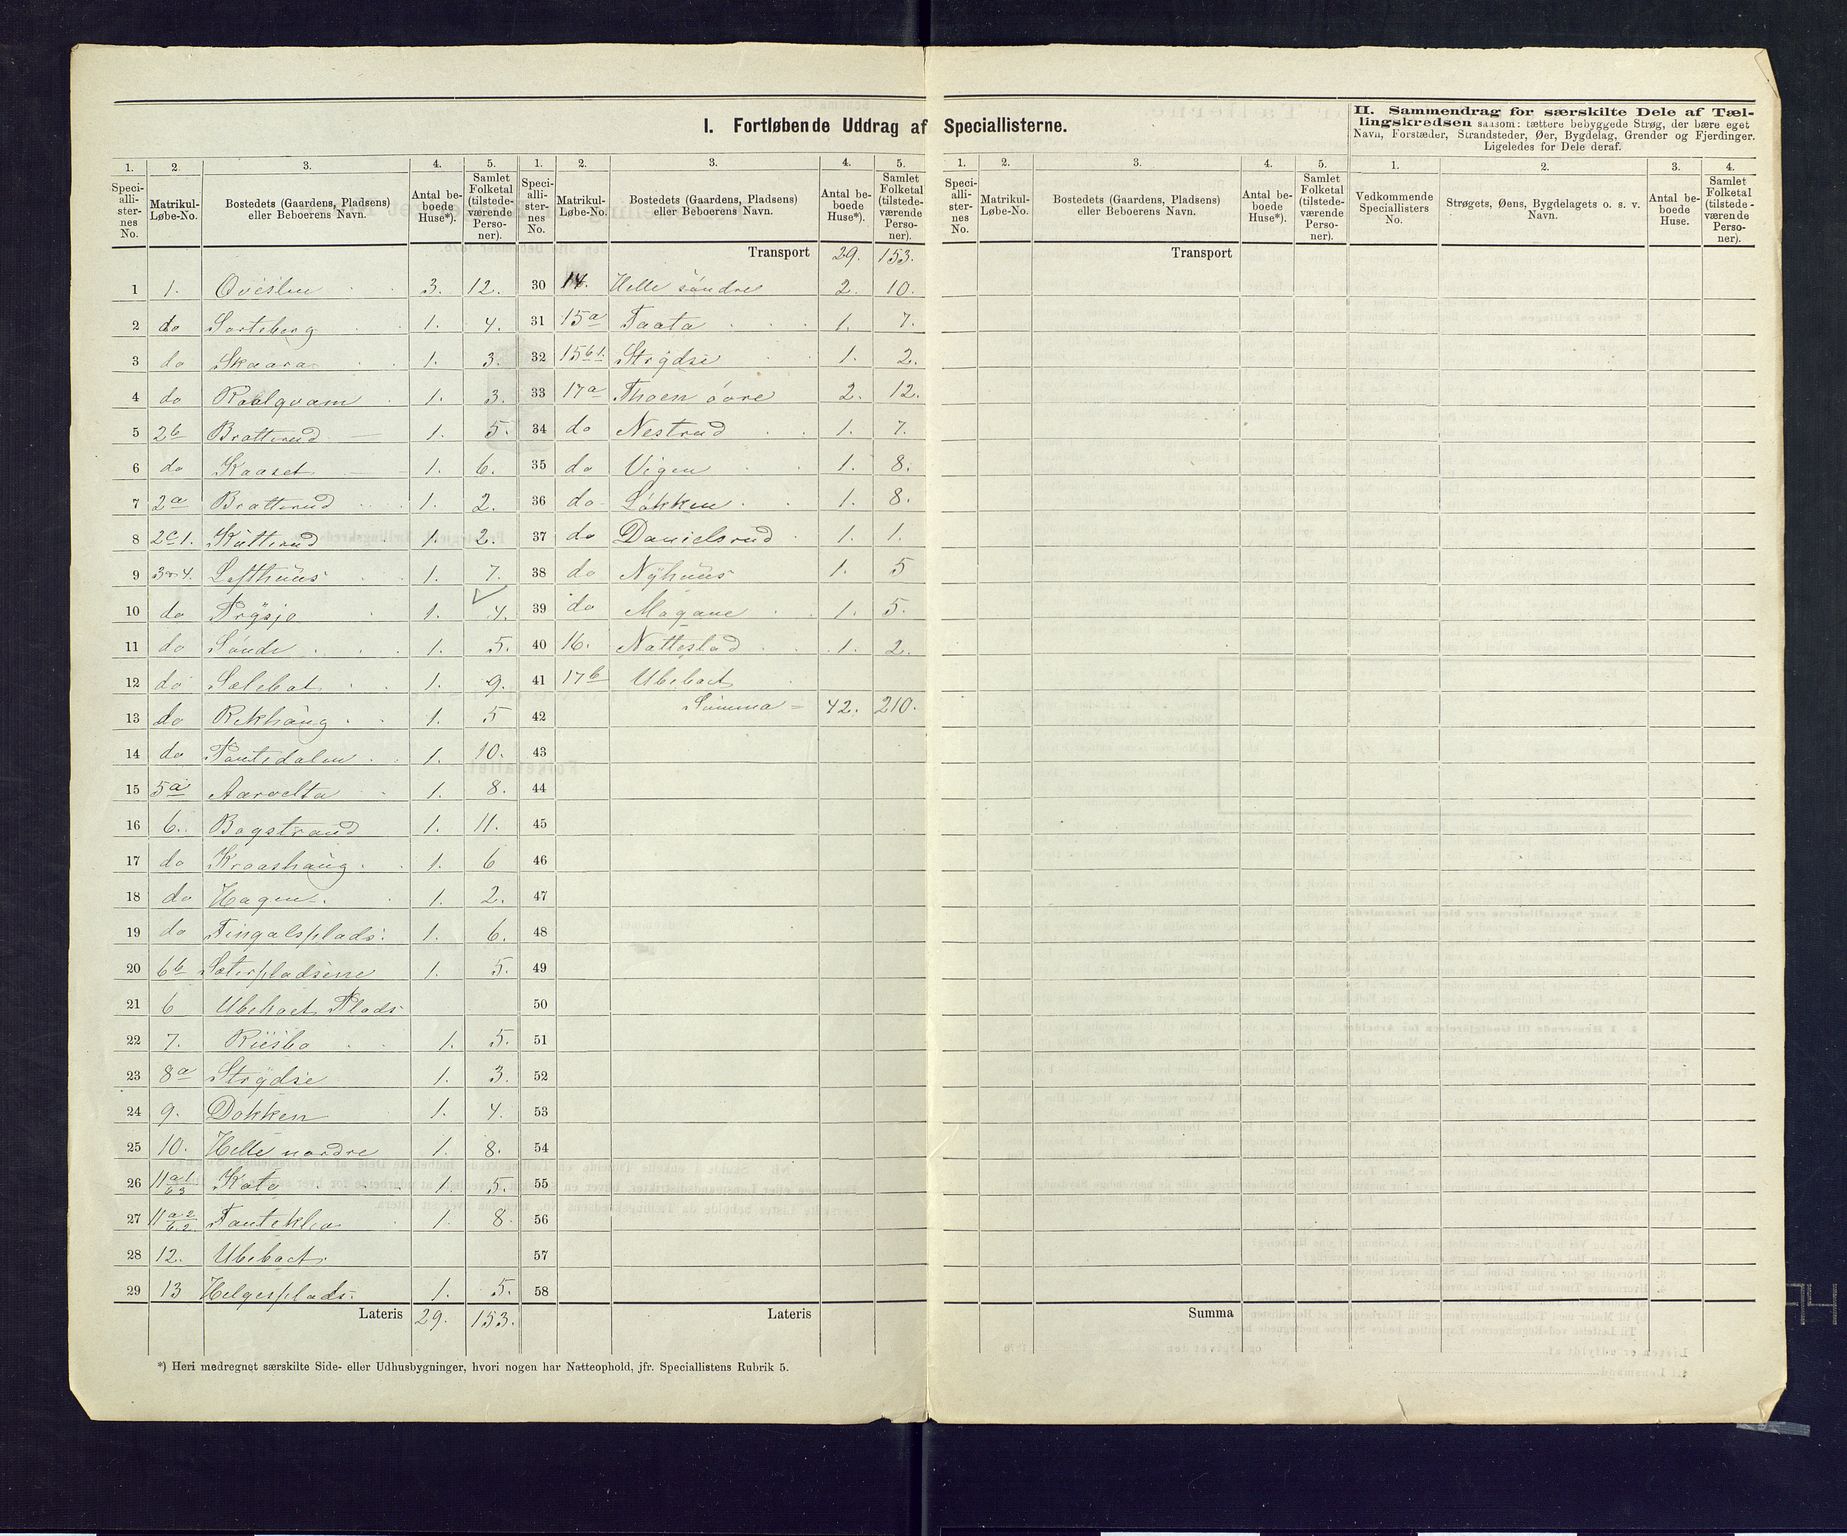 I. Fortløbende Uddrag af Speciallisterne.
II. Sammendrag for særskilte Dele af Tællingskredsen saasom: tættere bebyggede Strøg, der bære eget Navn, Forstæder, Strandsteder, Øer, Bygdelag, Grender og Fjerdinger. Ligeledes for Dele deraf.
1. 2. 3. 4. 5. 1. 2. 3. 4. 5. 1. 2. 3. 4. 5. 1. 2. 3. 4.
Speciallisternes No. Matrikul-Løbe-No. Bostedets (Gaardens, Pladsens) eller Beboerens Navn. Antal beboede Huse*). Samlet Folketal (tilstedeværende Personer).
Speciallisternes No. Matrikul-Løbe-No. Bostedets (Gaardens, Pladsens) eller Beboerens Navn. Antal beboede Huse*). Samlet Folketal (tilstedeværende Personer).
Speciallisternes No. Matrikul-Løbe-No. Bostedets (Gaardens, Pladsens) eller Beboerens Navn. Antal beboede Huse*). Samlet Folketal (tilstedeværende Personer).
Vedkommende Speciallisters No. Strøgets, Øens, Bygdelagets o. s. v. Navn. Antal beboede Huse. Samlet Folketal (tilstedeværende Personer).
1 1. Oveslen 3. 12.
2 do Sorteberg 1. 4.
3 do Skaara 1. 3.
4 do 1. 3.
5 2b Bratterud 1. 5.
6 do Kaaset 1. 6.
7 2a Bratterud 1. 2.
8 2c1. Kutterud 1. 2.
9 3 & 4. Lofthuus 1. 7.
10 do Prysjo 1. 4.
11 do Sónde 1. 5.
12 do Sælebot 1. 9.
13 do Rekhaug 1. 5
14 do Tontedalen 1. 10.
15 5a Aarvelta 1. 8.
16 6. Bagstrand 1. 11.
17 do Kraashaug 1. 6
18 do Hagen 1. 2.
19 do Fingalsplads 1. 6.
20 6b Sæterpladsene 1. 5.
21 6 Ubeboet Plads
22 7. Ruesbo 1. 5.
23 8a Strydse 1. 3.
24 9. Dokken 1. 4.
25 10. Helle nordre 1. 8.
26 11 a1/b3 Kato 1. 5.
27 11 a2/b2 Tanteklev 1. 8.
28 12. Ubeboet
29 13 Helgesplads 1. 5.
Lateris 29. 153.
Transport 29. 153.
30 14. Helle söndre 2. 10.
31 15a Taata 1. 7.
32 15b1. Strydse 1. 2.
33 17a Thoen övre 2. 12.
34 do Nestrud 1. 7.
35 do Vigen 1. 8.
36 do Løkken 1. 8.
37 do Danielsrud 1. 1.
38 do Nyhuus 1. 5
39 do Mogane 1. 5.
40 16. Nattestad 1. 2.
41 17b Ubeboet
42 Summa = 42. 210.
43
44
45
46
47
48
49
50
51
52
53
54
55
56
57
58
Lateris
Transport
Summa
*) Heri medregnet særskilte Side- eller Udhusbygninger, hvori nogen har Natteophold, jfr. Speciallistens Rubrik 5.